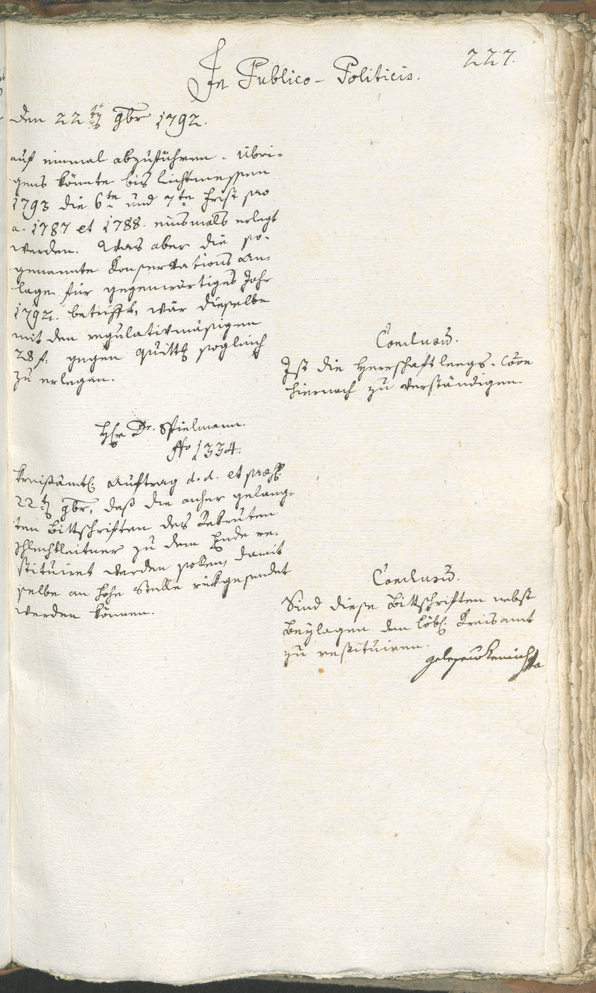 227.
In Publico-Politicis.
Den 22ten 9br 1792.
auf einmal abzuführen. Übri-
gens könnte bis Lichtmessen
1793 die 6te und 7te Frist pro
a. 1787 et 1788. einsmals erlegt
werden. Was aber die so-
genannte Conservations An-
lage für gegenwärtiges Jahr
1792. betrifft, wär dieselbe
mit den regulativmäsigen
28 f. gegen Quittg sogleich
zu erlegen.
Conclusum.
Ist die Herrschaft
hiernach zu verständigen.
Hr Dr. Spielmann.
No 1334.
Kreisämtl. Auftrag d.d. et
22ten 9br, daß die anher gelang-
ten Bittschriften des Rekruten
Schlechtleitner zu dem Ende re-
stituiret werden sollen, damit
selbe an hohe Stelle rükgesendet
werden können.
Conclusum.
Sind diese Bittschriften nebst
Beylagen dem löbl. Kreisamt
zu restituiren.